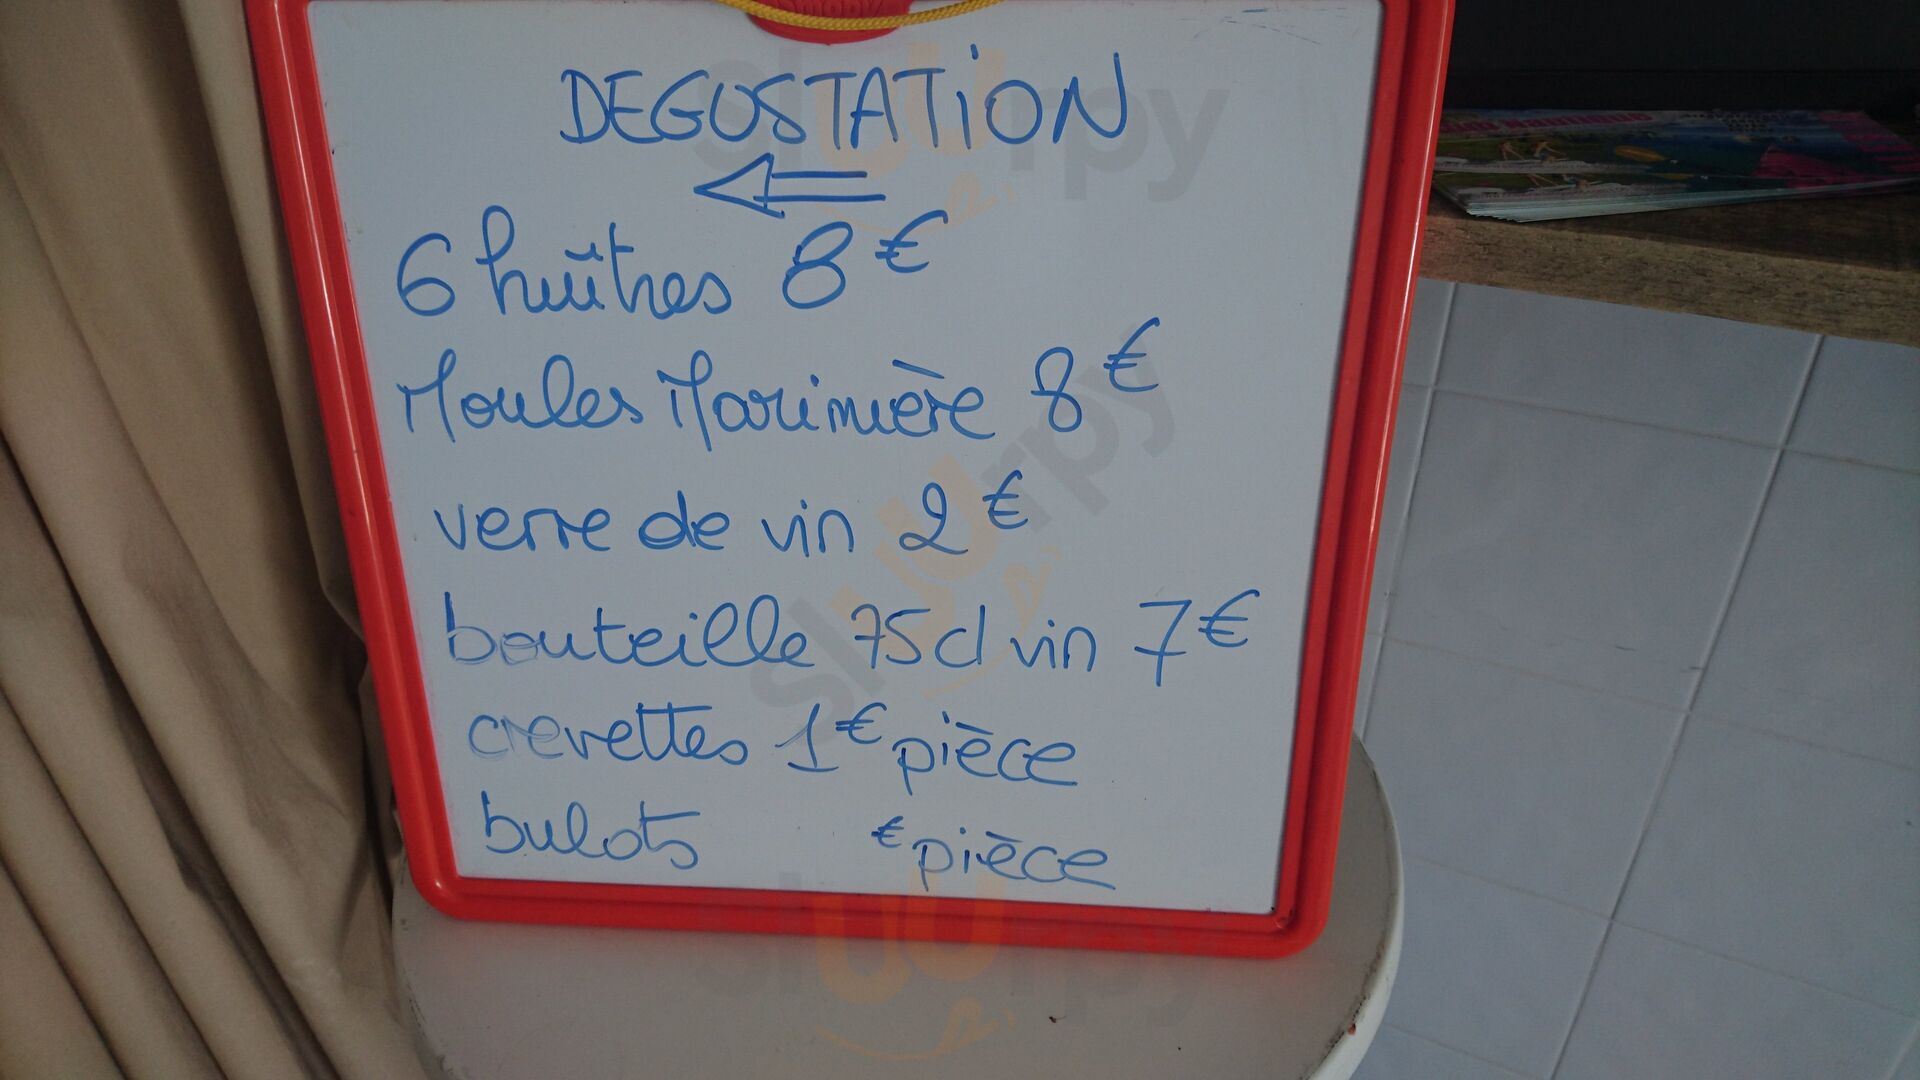 DEGUSTATiON
6 huîtres 8€
Moules Marinière 8€
verre de vin 2€
bouteille 75cl vin 7€
crevettes 1€ pièce
bulots € pièce
sluurpy
sluurpy
sluurpy